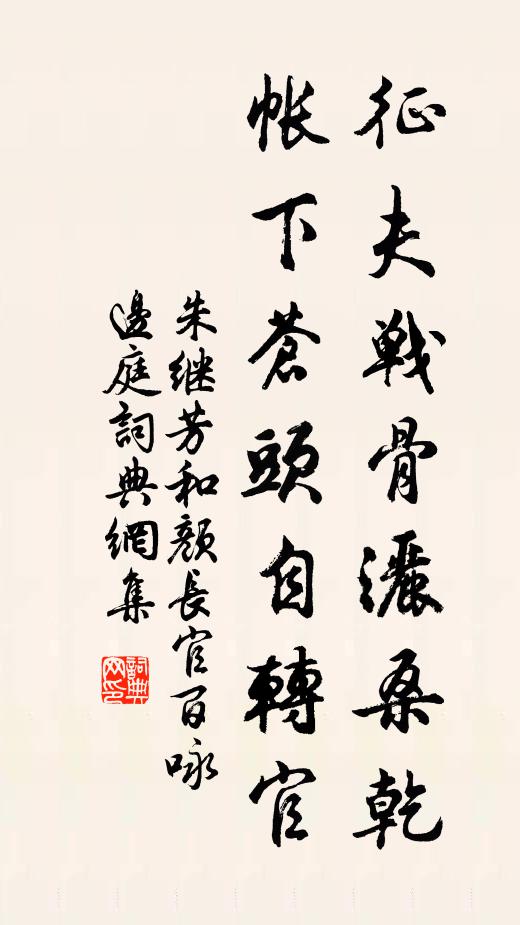 征夫戰骨灑桑乾
帳下蒼頭自轉官
朱继芳和顏長官百咏
邊庭詞典網集
詞典網印